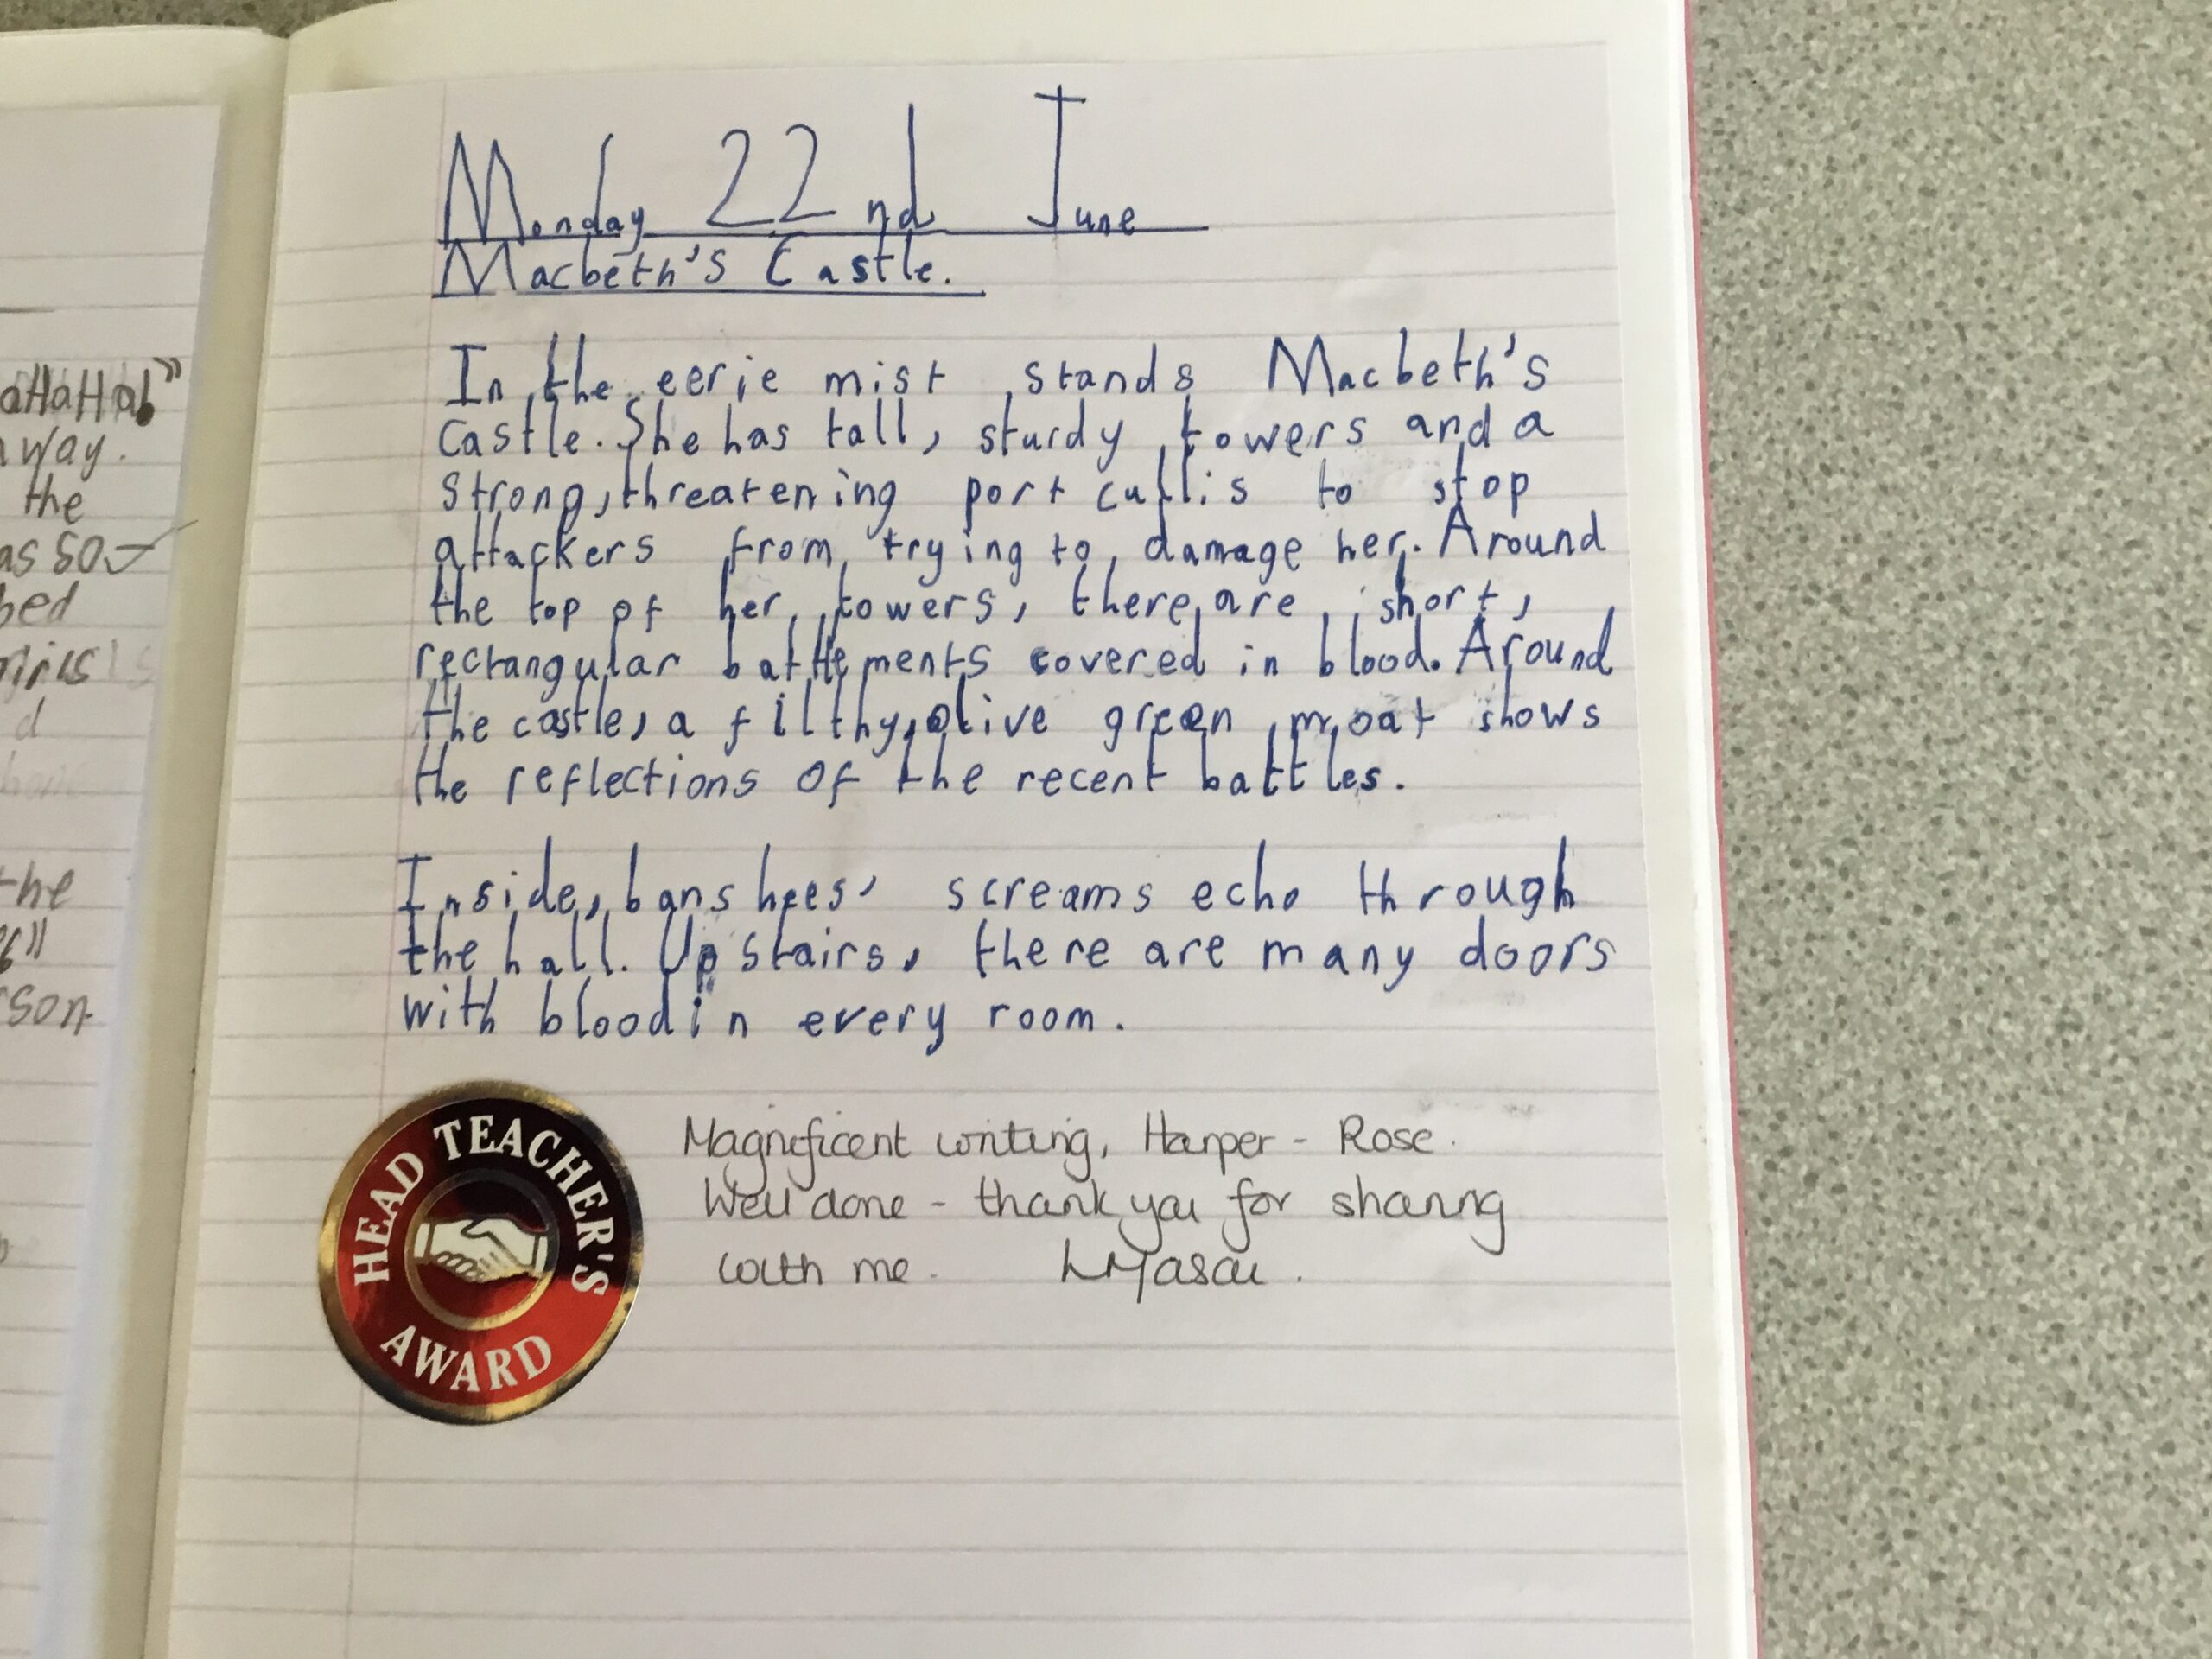 aHaHaHa!"
way.
the
as so
bed
d
the
son
Monday 22nd June
Macbeth's Castle.
In the eerie mist stands Macbeth's
castle. She has tall, sturdy towers and a
strong, threatening port cullis to stop
attackers from trying to damage her. Around
the top of her towers, there are short,
rectangular battlements covered in blood. Around
the castle, a filthy, olive green moat shows
the reflections of the recent battles.
Inside, banshees' screams echo through
the hall. Upstairs, there are many doors
with blood in every room.
HEAD TEACHER'S
AWARD
Magnificent writing, Harper-Rose.
Well done - thank you for sharing
with me.